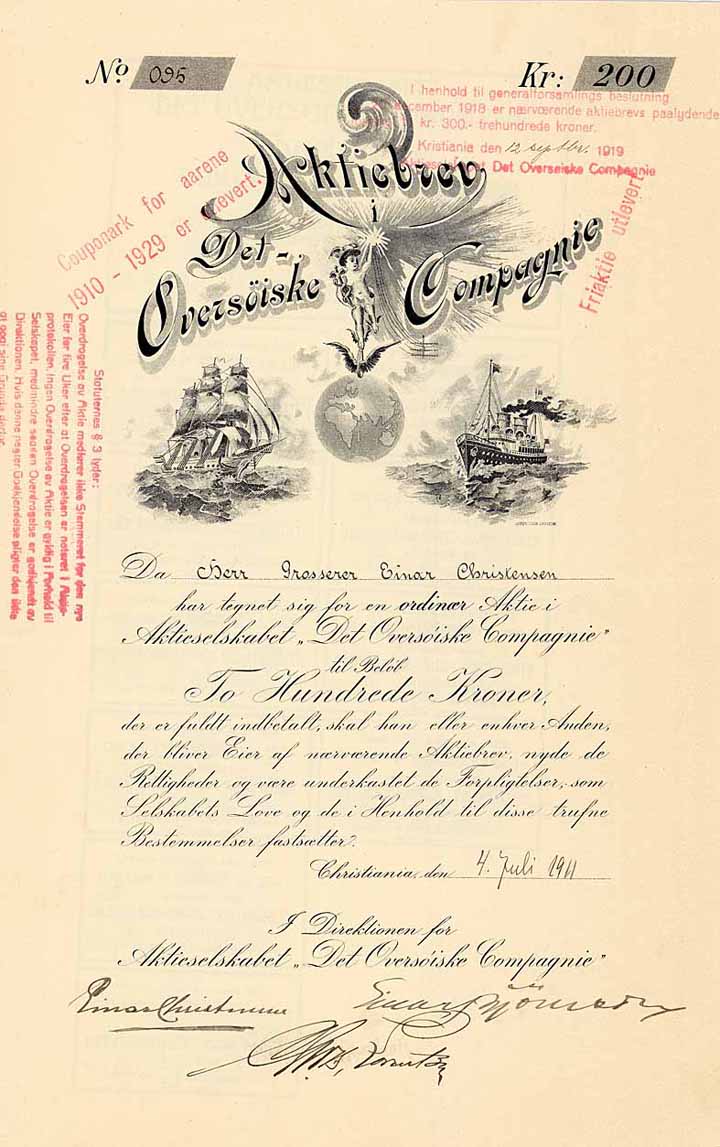 No 095
Kr: 200
I henhold til generalforsamlings beslutning
december 1918 er nærværende aktiebrevs paalydende
kr. 300.- trehundrede kroner.
Kristiania den 12 septbr. 1919
Aktieselskapet Det Oversøiske Compagnie
Couponark for aarene
1910 - 1929 er utlevert.
Friaktie utlevert
Aktiebrev
i
Det
Oversöiske Compagnie
Statuternes § 3 lyder:
Overdragelse av Aktie medfører ikke Stemmeret for den nye
Eier før fire Uker efter at Overdragelsen er noteret i Aktie-
protokollen. Ingen Overdragelse av Aktie er gyldig i Forhold til
Selskapet, medmindre saadan Overdragelse er godkjendt av
Direktionen. Hvis denne nægter Godkjendelse pligter den ikke
at opgi sine Grunde derfor.
Da Herr Grosserer Einar Christensen
har tegnet sig for en ordinær Aktie i
Aktieselskabet „Det Oversöiske Compagnie"
til Beløb
To Hundrede Kroner,
der er fuldt indbetalt, skal han eller enhver Anden,
der bliver Eier af nærværende Aktiebrev, nyde de
Rettigheder og være underkastet de Forpligtelser, som
Selskabets Love og de i Henhold til disse trufne
Bestemmelser fastsætter.
Christiania, den 4. Juli 1911
I Direktionen for
Aktieselskabet „Det Oversöiske Compagnie"
Einar Christensen
Einar